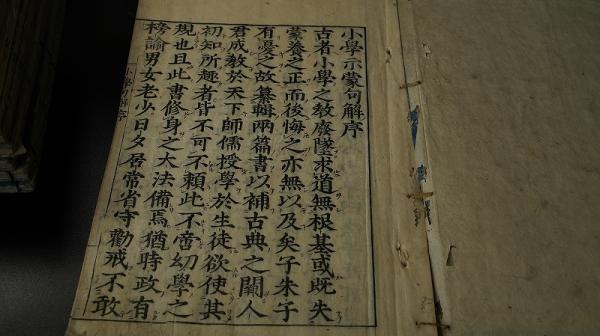 小學示蒙句解序
古者小學之教廢墜求道無根基或既失
蒙養之正而後悔之亦無以及矣子朱子
有憂之故纂輯兩篇書以補古典之闕人
君成教於天下師儒授學於生徒欲使其
初知所趣者皆不可不賴此不啻幼學之
規也且此書修身之大法備焉猶時政有
榜諭男女老少日夕居常省守勸戒不敢